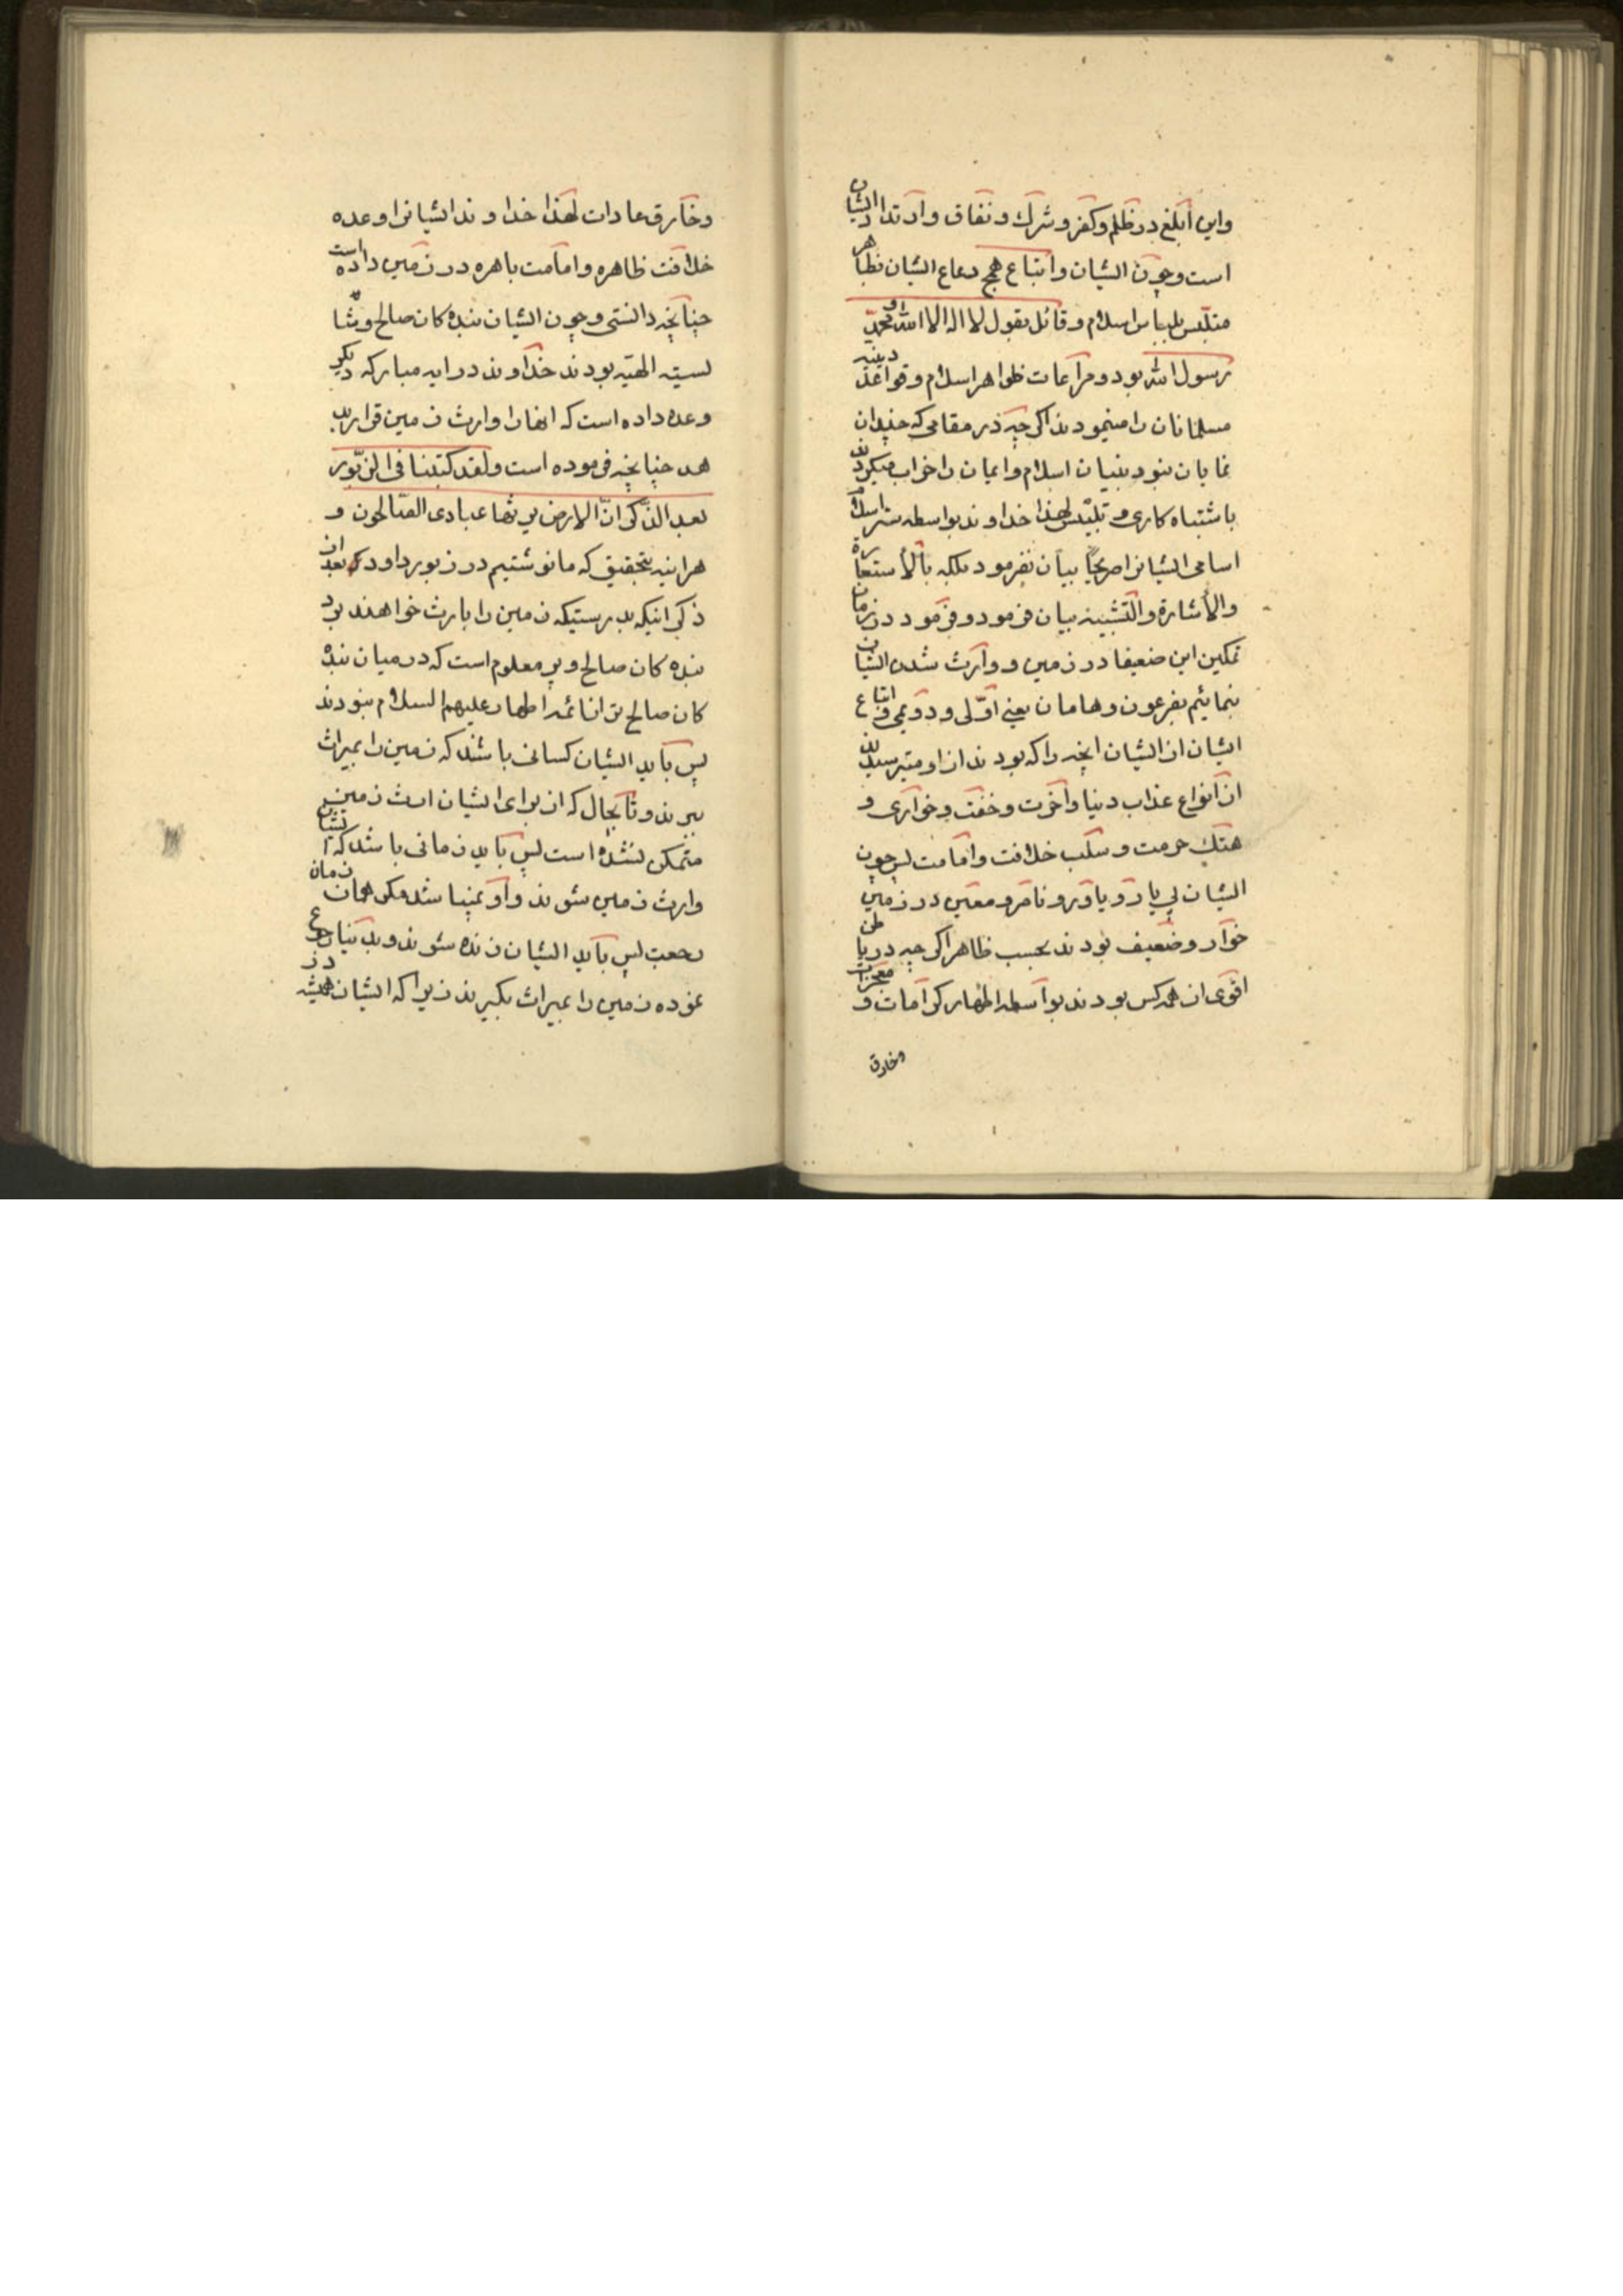 واین ابلغ در ظلم و کفر و شرک و نفاق و ارتداد ایشان
است و چون ایشان و اتباع همج رعاع ایشان بظاهر
متلبس بلباس اسلام و قائل بقول لا اله الا الله و محمد
رسول الله بود و مراعات ظواهر اسلام و قواعد دینیه
مسلمانان را مینمودند اکر چه در مقامی که چندان
نمایان نبود بنیان اسلام و ایمان را خراب میکردند
باشتباه کاری و تلبیس لهذا خداوند بواسطه ستر اسلام
اسامی ایشانرا صریحاً بیان نفرمود بلکه بالاستعارة
والاشارة والتشبیه بیان فرمود و فرمود در زمان
تمکین این ضعیفا در زمین و وارث شدن ایشان
بنمائیم بفرعون و هامان یعنی اوّلی و دویمی و اتباع
ایشان از ایشان انچه را که بودند از او میترسیدند
از انواع عذاب دنیا و اخرت و خفت و خواری و
هتک حرمت و سلب خلافت و امامت پس چون
ایشان بی یار و یاور و ناصر و معین در زمین
خوار و ضعیف بودند بحسب ظاهر اکر چه در باطن
اقوی از همه کس بودند بواسطه اظهار کرامات و معجزات
وخارق
وخارق عادات لهذا خداوند ایشانرا وعده
خلافت ظاهره و امامت باهره در زمین داده است
چنانچه دانستی و چون ایشان بنده کان صالح و شا
یسته الهیه بودند خداوند در ایه مبارکه دیکر
وعده داده است که انها را وارث زمین قرار بد
هد چنانچه فرموده است ولقد کتبنا فی الزّبور
بعد الذّکر انّ الارض یرثها عبادی الصّالحون و
هراینه بتحقیق که ما نوشتیم در زبور داود بعد از
ذکر اینکه بدرستیکه زمین را بارث خواهند برد
بنده کان صالح و پر معلوم است که در میان بنده
کان صالح تر از ائمه اطهار علیهم السلام نبودند
پس باید ایشان کسانی باشند که زمین را بمیراث
ببرند و تا بحال که از برای ایشان ارث زمین
متمکن نشده است پس باید زمانی باشد که ایشان
وارث زمین شوند و او نمیباشد مکر همان زمان
رجعت پس باید ایشان زنده شوند و بدنیا رجوع
نموده زمین را بمیراث بکیرند زیرا که ایشان همیشه در